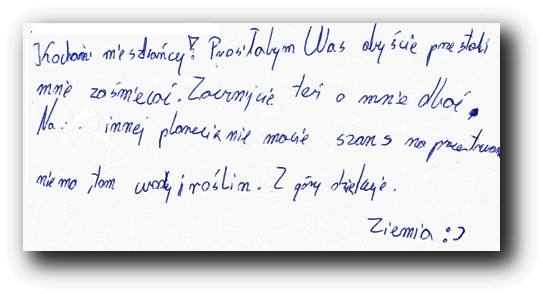 Kochani mieszkańcy! Prosiłabym Was abyście przestali
mnie zaśmiecać. Zacznijcie też o mnie dbać.
Na innej planecie nie macie szans na przetrwan
niema tam wody i roślin. Z góry dziękuję.
Ziemia :)